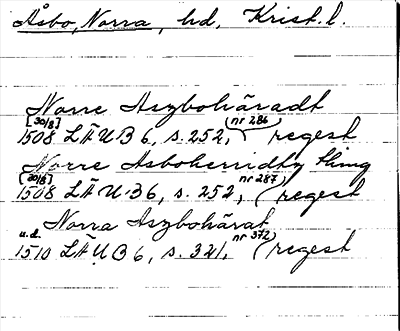 Åsbo, Norra, hd, Krist. l.
Norre Aszbohäradt
[30/8] 1508 LÄUB 6, s. 252, (nr 286) (regest
Norre Asboherridtz thing
[30/8] 1508 LÄUB 6, s. 252, nr 287) (regest
Norra Aszbohärat
u.d. 1510 LÄUB 6, s. 321, nr 372) (regest